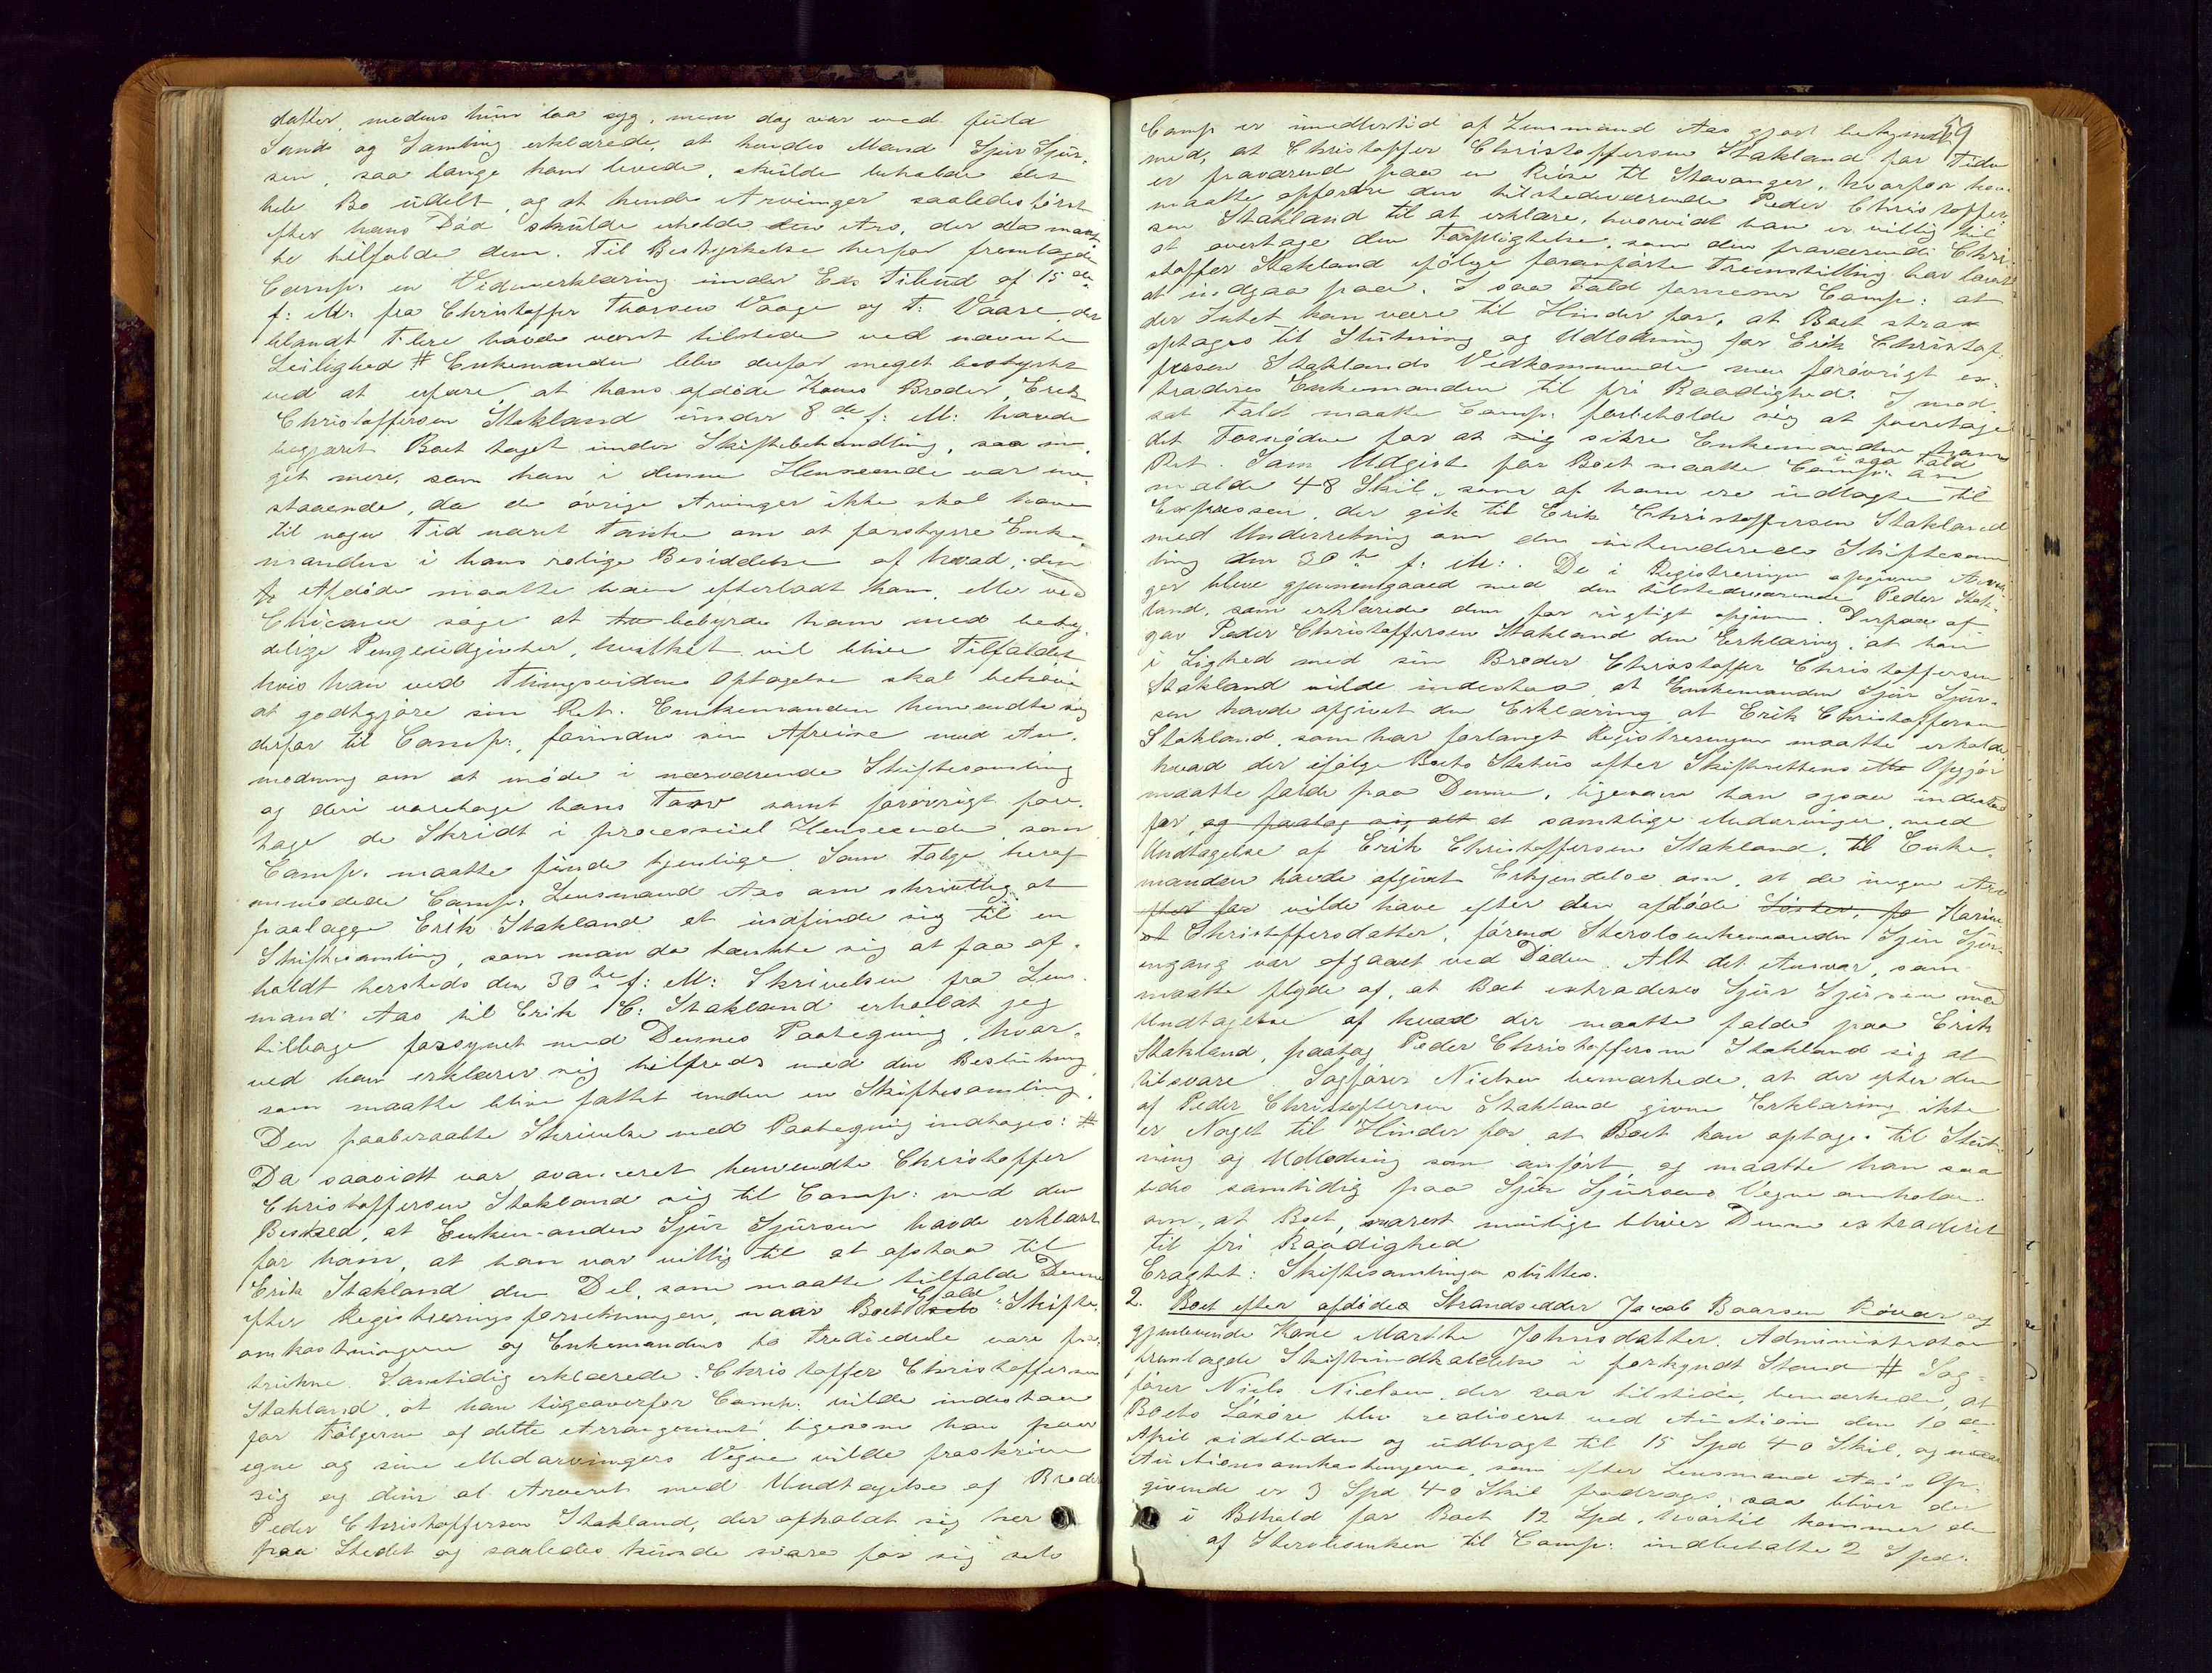 datter, medens hun laa syg, men dog var ved fuld
Sands og Samling erklærede, at hendes Mand Sjur Sjur-
sen, saa længe han levede, skulde beholde det
hele Bo udelt, og at hendes Arvinger saaledes først
efter hans Død skulde erholde den Arv, der da maat-
te tilfalde dem. Til Bestyrkelse herfor fremlagde
Comp: en Vidneerklæring under Ex Tibud af 15de
f: M: fra Christoffer Thorsen Vaage og T: Vaare der
blandt Flere havde været tilstede ved nævnte
Leilighed # Enkemanden blev derfor meget bestyrtet
ved at erfare, at hans afdøde Kones Broder, Erik
Christoffersen Stakland under 8de f: M: havde
begjæret Boet taget under Skiftebehandling, saa me-
get mere, som han i denne Henseende var ene-
staaende, da de øvrige Arvinger ikke skal have
til nogen Tid næret Tanke om at forstyrre Enke-
manden i hans rolige Besiddelse af hvad den
Afdøde maatte have efterladt ham, eller ved
Chicane søge at bebyrde ham med bety-
delige Pengeudgivter, hvilket vil blive Tilfældet
hvis han ved Thingsvidnes Optagelse skal behøve
at godtgjøre sin Ret. Enkemanden henvendte sig
derfor til Comp:, forinden sin Afreise med An-
modning om at møde i nærværende Skiftesamling
og deri varetage hans Tarv samt forøvrigt fore-
tage de Skridt i processuel Henseende, som
Comp. maatte finde tjenlige. Som Følge heraf
anmodede Comp: Lensmand Aas om skriftlig at
paalægge Erik Stakland at indfinde sig til en
Skiftesamling, som man da tænkte sig at faa af-
holdt hersteds den 30te f: M: Skrivelsen fra Lens-
mand Aas til Erik C: Stakland erholdt jeg
tilbage forsynet med Dennes Paategning, hvor-
ved han erklærer sig tilfreds med den Beslutning,
som maatte blive fattet under en Skiftesamling.
Den paaberaabte Skrivelse med Paategning indtages: #
Da saavidt var avanceret henvendte Christoffer
Christoffersen Stakland sig til Comp: med den
Besked, at Enkemanden Sjur Sjursen havde erklært
for ham, at han var villig til at afstaa til
Erik Stakland den Del, som maatte tilfalde Denne
efter Registreringsforretningen, naar Boets Gjæld Skifte-
omkostningerne og Enkemandens to Trediedele vare fra-
trukne. Samtidig erklærede Christoffer Christoffersen
Stakland, at han ligeoverfor Comp: vilde indestaa
for Følgerne af dette Arrangement, ligesom han paa
egne og sine Medarvingers Vegne vilde fraskrive
sig og dem al Arveret med Undtagelse af Broder
Peder Christoffersen Stakland, der opholdt sig her
paa Stedet og saaledes kunde svare for sig selv
59
Comp er imidlertid af Lensmand Aas gjort bekjendt
med, at Christoffer Christoffersen Stakland for Tiden
er fraværende paa en Reise til Stavanger, hvorfor han
maatte opfordre den tilstedeværende Peder Christoffer-
sen Stakland til at erklære, hvorvidt han er villig til
at overtage den Forpligtelse, som den fraværende Chri-
stoffer Stakland ifølge foranførte Fremstilling har lovet
at indgaa paa. I saa Fald formener Comp: at
der Intet kan være til Hinder for, at Boet strax
optages til Slutning og Udlodning for Erik Christof-
fersen Staklands Vedkommende men forøvrigt ex-
traderes Enkemanden til fri Raadighed. I mod-
sat Fald maatte Comp: forbeholde sig at foretage
det Fornødne for at sig sikre Enkemanden hans
Ret. Som Udgivt for Boet maatte Comp: i saa Fald an-
melde 48 Skil., som af ham ere udlagte til
Expressen, der gik til Erik Christoffersen Stakland
med Underretning om den intenderede Skiftesam-
ling den 30te f: M:. De i Registreringen opgivne Arvin-
ger bleve gjennemgaaed med den tilstedeværende Peder Stak-
land, som erklærede dem for rigtigt opgivne. Derpaa af-
gav Peder Christoffersen Stakland den Erklæring, at han
i Lighed med sin Broder Christoffer Christoffersen
Stakland vilde indestaa, at Enkemanden Sjur Sjur-
sen havde afgivet den Erklæring at Erik Christoffersen
Stakland, som har forlangt Registreringen maatte erholde
hvad der ifølge Boets Status efter Skifterettens Opgjør
maatte falde paa Denne, ligesom han ogsaa indestod
for, og paatog sig alt at samtlige Medarvinger, med
Undtagelse af Erik Christoffersen Stakland, til Enke-
manden havde afgivet Erkjendelse om, at de ingen Arv
efter for vilde have efter den afdøde Søster, fo Karine
Christoffersdatter, førend Sterboenkemanden Sjur Sjur-
engang var afgaaet ved Døden. Alt det Ansvar, som
maatte flyde af, at Boet extraderes Sjur Sjursen med
Undtagelse af hvad der maatte falde paa Erik
Stakland, paatog Peder Christoffersen Stakland sig at
tilsvare. Sagfører Nielsen bemærkede, at der efter den
af Peder Christoffersen Stakland givne Erklæring ikke
er Noget til Hinder for at Boet kan optages til Slut-
ning og Udlodning som anført, og maatte han saa
ledes samtidig paa Sjur Sjursens Vegne anholde
om, at Boet, snarest muligt bliver Denne extraderet
til fri Raadighed
Eragtet: Skiftesamlingen sluttes.
2. Boet efter afdøde Strandsidder Jacob Baarsen Røvær og
gjenlevende Kone Marthe Johnsdatter. Administrator
fremlagde Skifteindkaldelse i forkyndt Stand # Sag-
fører Niels Nielsen, der var tilstede, bemærkede, at
Boets Løsøre blev realiseret ved Auction den 10de
April sidstleden og udbragt til 15 Spd 40 Skil, og naar
Auctionsomkostningerne, som efter Lensmand Aas's Op-
givende er 3 Spd 40 Skil fradrages, saa bliver der
i Behold for Boet 12 Spd, hvortil kommer de
af Sterboenken til Comp: indbetalte 2 Spd.